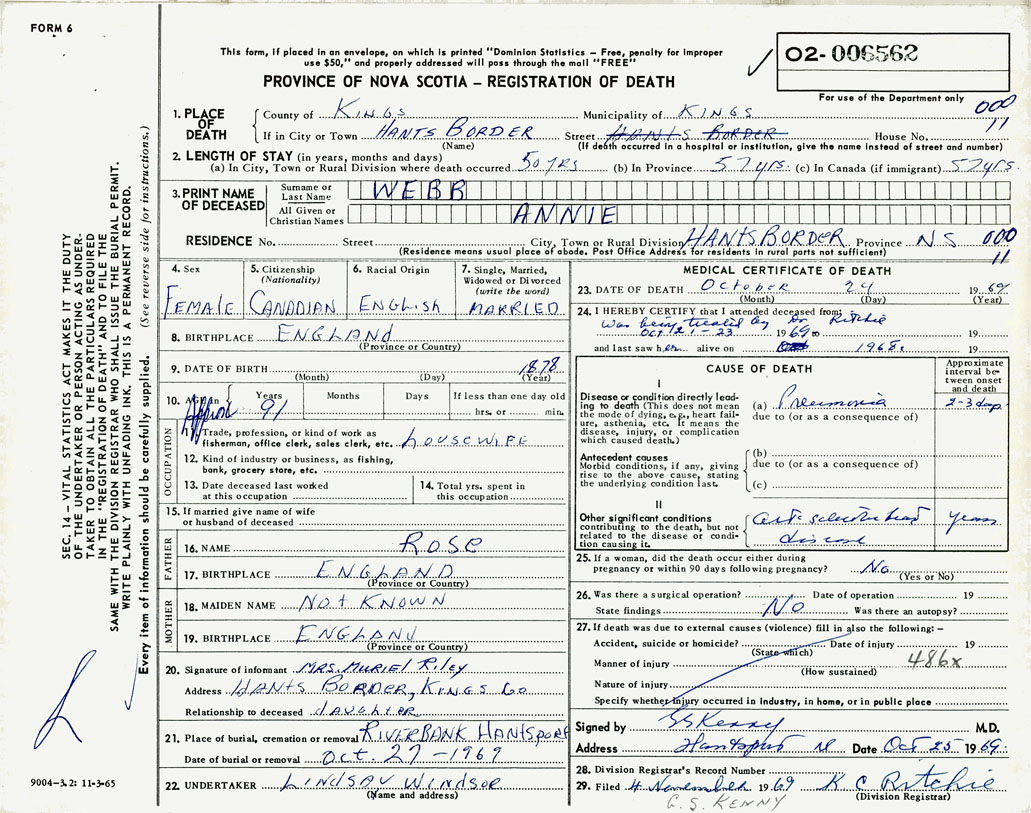 FORM 6
This form, if placed in an envelope, on which is printed "Dominion Statistics – Free, penalty for improper
use $50," and properly addressed will pass through the mail "FREE"
02-006562
PROVINCE OF NOVA SCOTIA – REGISTRATION OF DEATH
For use of the Department only
000
11
1. PLACE OF DEATH
County of KINGS Municipality of KINGS
If in City or Town HANTS BORDER Street HANTS BORDER House No.
(Name) (If death occurred in a hospital or institution, give the name instead of street and number)
2. LENGTH OF STAY (in years, months and days)
(a) In City, Town or Rural Division where death occurred 50 yrs (b) In Province 57 yrs. (c) In Canada (if immigrant) 57 yrs.
3. PRINT NAME OF DECEASED
Surname or Last Name WEBB
All Given or Christian Names ANNIE
RESIDENCE No. Street City, Town or Rural Division HANTS BORDER Province N S 000
11
(Residence means usual place of abode. Post Office Address for residents in rural parts not sufficient)
4. Sex
FEMALE
5. Citizenship
(Nationality)
CANADIAN
6. Racial Origin
ENGLISH
7. Single, Married,
Widowed or Divorced
(write the word)
MARRIED
8. BIRTHPLACE ENGLAND
(Province or Country)
9. DATE OF BIRTH 1878
(Month) (Day) (Year)
10. Approx 91 Years Months Days If less than one day old
hrs. or min.
OCCUPATION
11. Trade, profession, or kind of work as
fisherman, office clerk, sales clerk, etc. HOUSEWIFE
12. Kind of industry or business, as fishing,
bank, grocery store, etc.
13. Date deceased last worked
at this occupation
14. Total yrs. spent in
this occupation
15. If married give name of wife
or husband of deceased
FATHER
16. NAME ROSE
17. BIRTHPLACE ENGLAND
(Province or Country)
MOTHER
18. MAIDEN NAME NOT KNOWN
19. BIRTHPLACE ENGLAND
(Province or Country)
20. Signature of informant MRS. MURIEL Riley
Address HANTS BORDER, KINGS Co
Relationship to deceased daughter
21. Place of burial, cremation or removal RIVERBANK HANTSPORT
Date of burial or removal Oct. 27 – 1969
22. UNDERTAKER LINDSAY WINDSOR
(Name and address)
MEDICAL CERTIFICATE OF DEATH
23. DATE OF DEATH October 24 1969
(Month) (Day) (Year)
24. I HEREBY CERTIFY that I attended deceased from
Was being treated by Dr Ritchie
Oct 21 - 23 1969 19
and last saw her alive on 1968. 19
CAUSE OF DEATH
Approximate
interval be-
tween onset
and death
I
Disease or condition directly lead-
ing to death (This does not mean
the mode of dying, e.g., heart fail-
ure, asthenia, etc. It means the
disease, injury, or complication
which caused death.)
(a) Pneumonia 2-3 days
due to (or as a consequence of)
Antecedent causes
Morbid conditions, if any, giving
rise to the above cause, stating
the underlying condition last.
(b)
due to (or as a consequence of)
(c)
II
Other significant conditions
contributing to the death, but not
related to the disease or condi-
tion causing it.
heart years
disease
25. If a woman, did the death occur either during
pregnancy or within 90 days following pregnancy? No
(Yes or No)
26. Was there a surgical operation? Date of operation 19
State findings NO Was there an autopsy?
27. If death was due to external causes (violence) fill in also the following: –
Accident, suicide or homicide? Date of injury 19
(State which)
Manner of injury 486x
(How sustained)
Nature of injury
Specify whether injury occurred in industry, in home, or in public place
Signed by Kenny M.D.
Address Hantsport Date Oct 25 1969.
28. Division Registrar's Record Number
29. Filed 4 November 1969 K C Ritchie
(Division Registrar)
G. S. KENNY
SEC. 14 – VITAL STATISTICS ACT MAKES IT THE DUTY
OF THE UNDERTAKER OR PERSON ACTING AS UNDER-
TAKER TO OBTAIN ALL THE PARTICULARS REQUIRED
IN THE "REGISTRATION OF DEATH" AND TO FILE THE
SAME WITH THE DIVISION REGISTRAR WHO SHALL ISSUE THE BURIAL PERMIT.
WRITE PLAINLY WITH UNFADING INK. THIS IS A PERMANENT RECORD.
Every item of information should be carefully supplied. (See reverse side for instructions.)
9004-3.2: 11-3-65